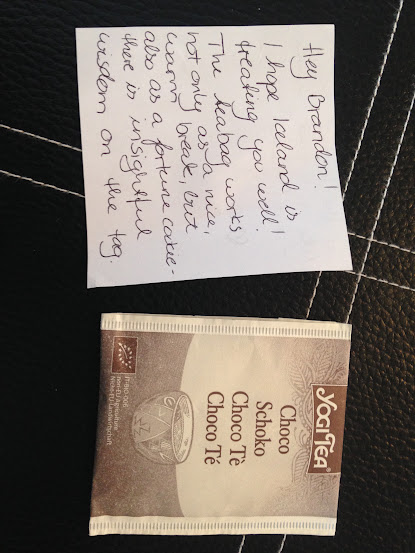 Hey Brandon!
I hope Iceland is
treating you well!
The teabag works
not only as a nice,
warm break, but
also as a fortune cookie -
there is insightful
wisdom on the tag.
YOGI TEA®
Choco
Schoko
Choco Tè
Choco Té
non-EU Agriculture
Nicht-EU-Landwirtschaft